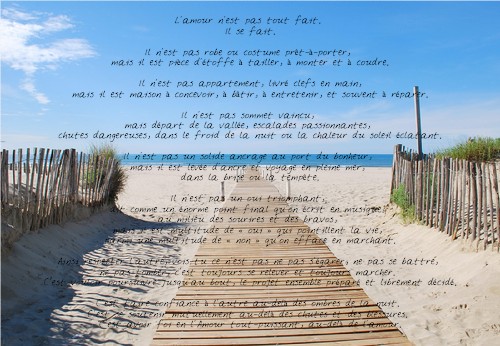 L'amour n'est pas tout fait.
Il se fait.
Il n'est pas robe ou costume prêt-à-porter,
mais il est pièce d'étoffe à tailler, à monter et à coudre.
Il n'est pas appartement, livré clefs en main,
mais il est maison à concevoir, à bâtir, à entretenir, et souvent à réparer.
Il n'est pas sommet vaincu,
mais départ de la vallée, escalades passionnantes,
chutes dangereuses, dans le froid de la nuit ou la chaleur du soleil éclatant.
Il n'est pas un solide ancrage au port du bonheur,
mais il est levée d'ancre et voyage en pleine mer,
dans la brise ou la tempête.
Il n'est pas un oui triomphant,
comme un énorme point final qu'on écrit en musique,
au milieu des sourires et des bravos,
mais il est multitude de « oui » qui pointillent la vie,
une multitude de « non » qu'on efface en marchant.
ce n'est pas ne pas s'égarer, ne pas se battre,
ne pas tomber, c'est toujours se relever et toujours marcher.
poursuivre jusqu'au bout, le projet ensemble préparé et librement décidé.
faire confiance à l'autre au-delà des ombres de la nuit.
se soutenir mutuellement au-delà des chutes et des blessures.
avoir foi en l'Amour tout-puissant, au-delà de l'amour.